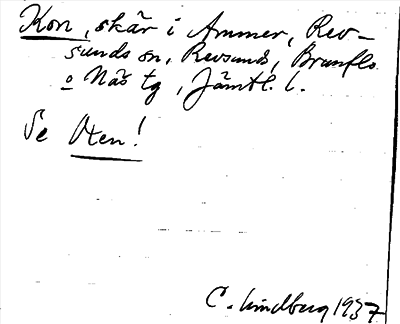 Kon, skär i Ammer, Rev-
sunds sn, Revsunds, Brunflo
o Näs tg, Jämtl. l.
Se Oxen!
C. Lindberg 1937